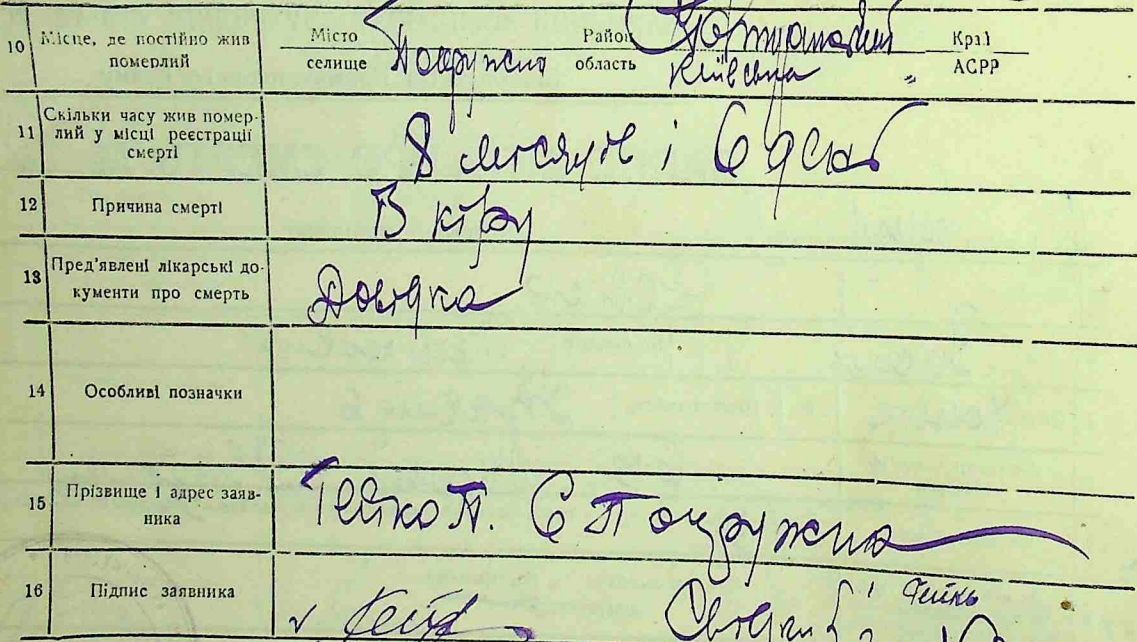 10 Місце, де постійно жив померлий Місто селище Подружна Район область Київська Край АСРР "
11 Скільки часу жив помер-
лий у місці реєстрації
смерті 8 місяців і 6 днів
12 Причина смерті В кіру
13 Пред'явлені лікарські до-
кументи про смерть Довідка
14 Особливі позначки
15 Прізвище і адрес заяв-
ника Гейко П. С Подружна
16 Підпис заявника Гейко